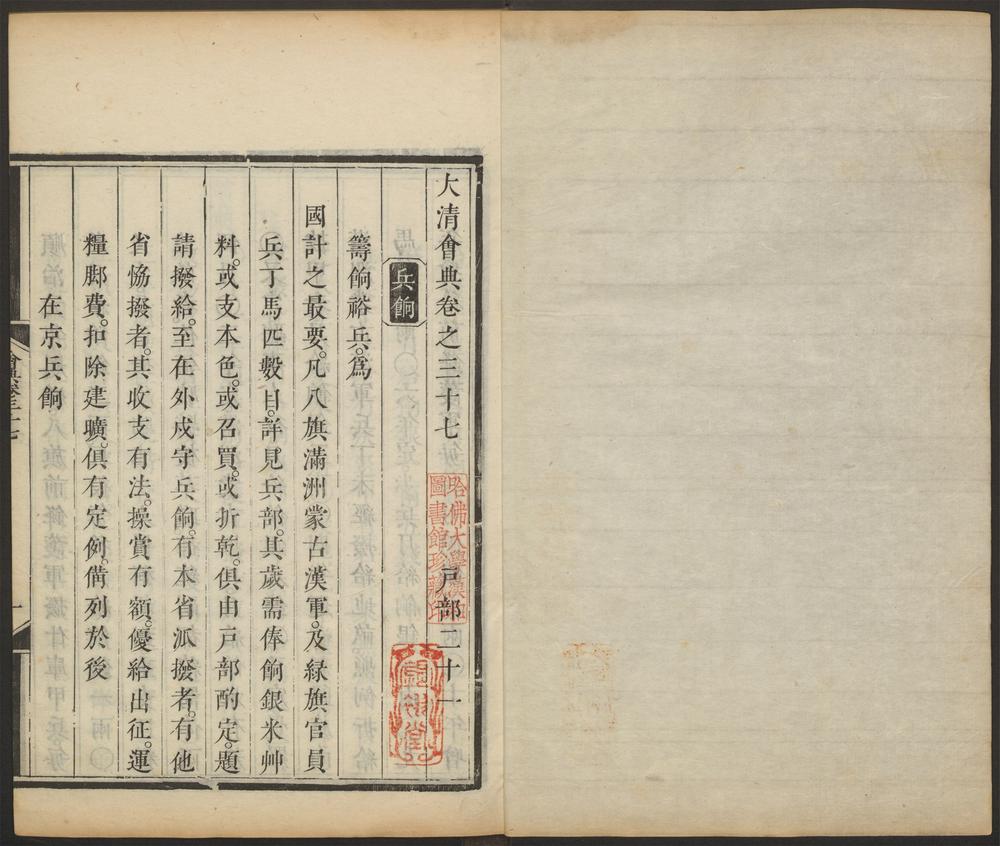 大清會典卷之三十七 戸部二十一
兵餉
籌餉裕兵。爲
國計之最要。凡八旗滿洲蒙古漢軍。及緑旗官員
兵丁馬匹數目。詳見兵部。其歲需俸餉銀米艸
料。或支本色。或召買。或折乾。俱由戸部酌定。題
請撥給。至在外戍守兵餉。有本省派撥者。有他
省恊撥者。其收支有法。操賞有額。優給出征。運
糧脚費。扣除建曠。俱有定例。備列於後
在京兵餉
哈佛大學漢和
圖書館珍藏印